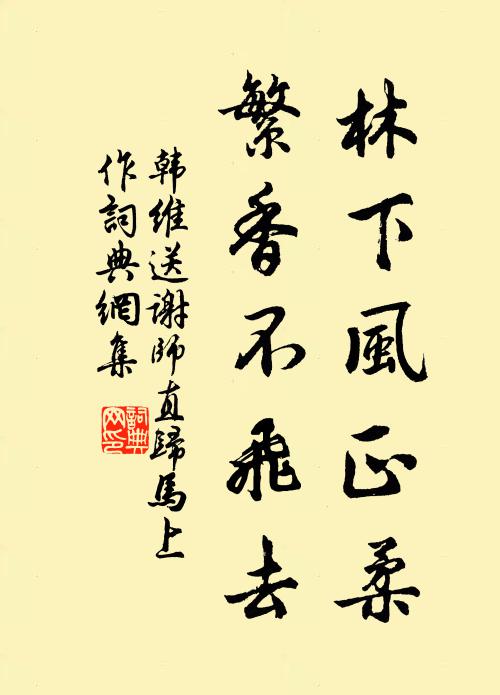 林下風正柔
繁香不飛去
韩維送谢師直歸馬上
作詞典網集
詞典
网印